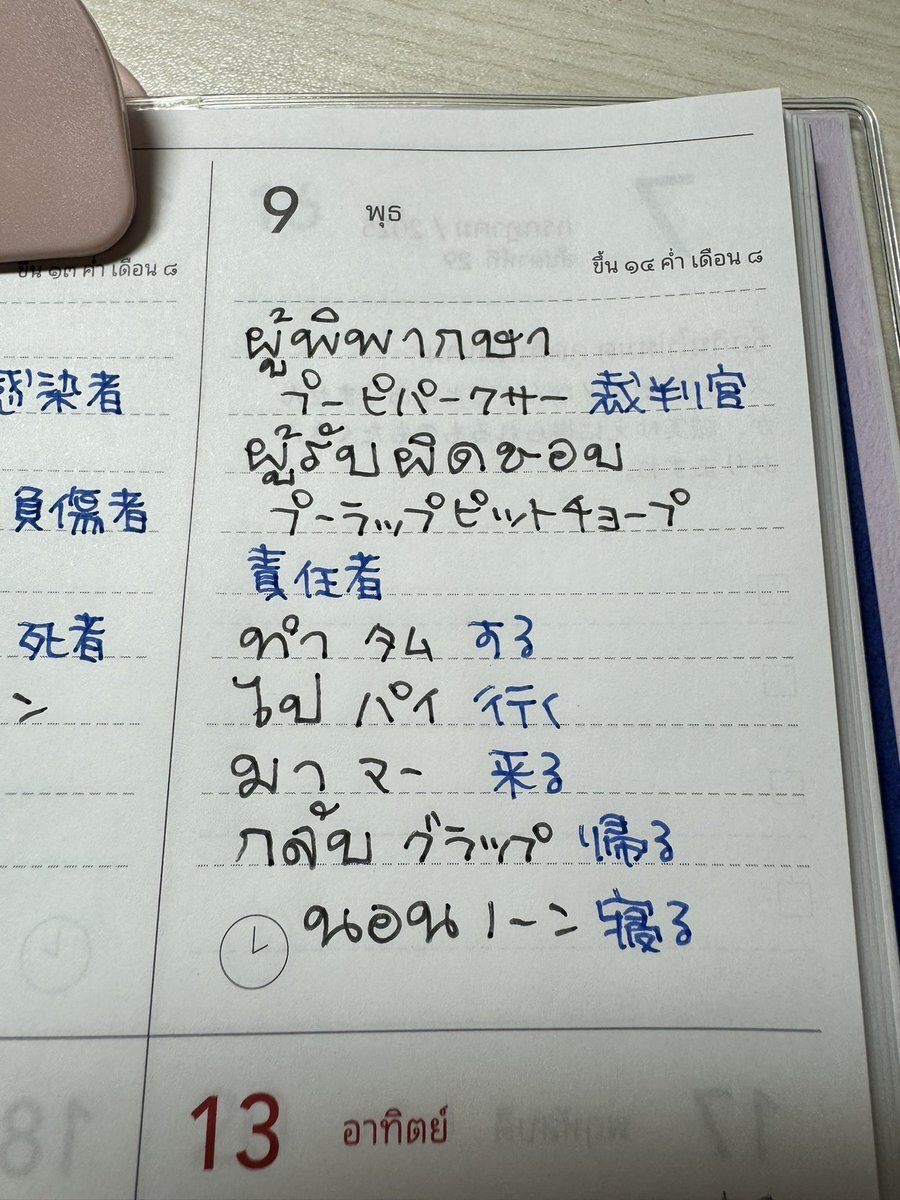 9 พุธ
ขึ้น ๑๓ ค่ำ เดือน ๘
ขึ้น ๑๔ ค่ำ เดือน ๘
ผู้พิพากษา
プーピパークサー 裁判官
感染者
ผู้รับผิดชอบ
負傷者
プーラップピットチョープ
責任者
死者
ทำ タム する
ン
ไป パイ 行く
มา マー 来る
กลับ グラップ 帰る
นอน ノーン 寝る
13 อาทิตย์